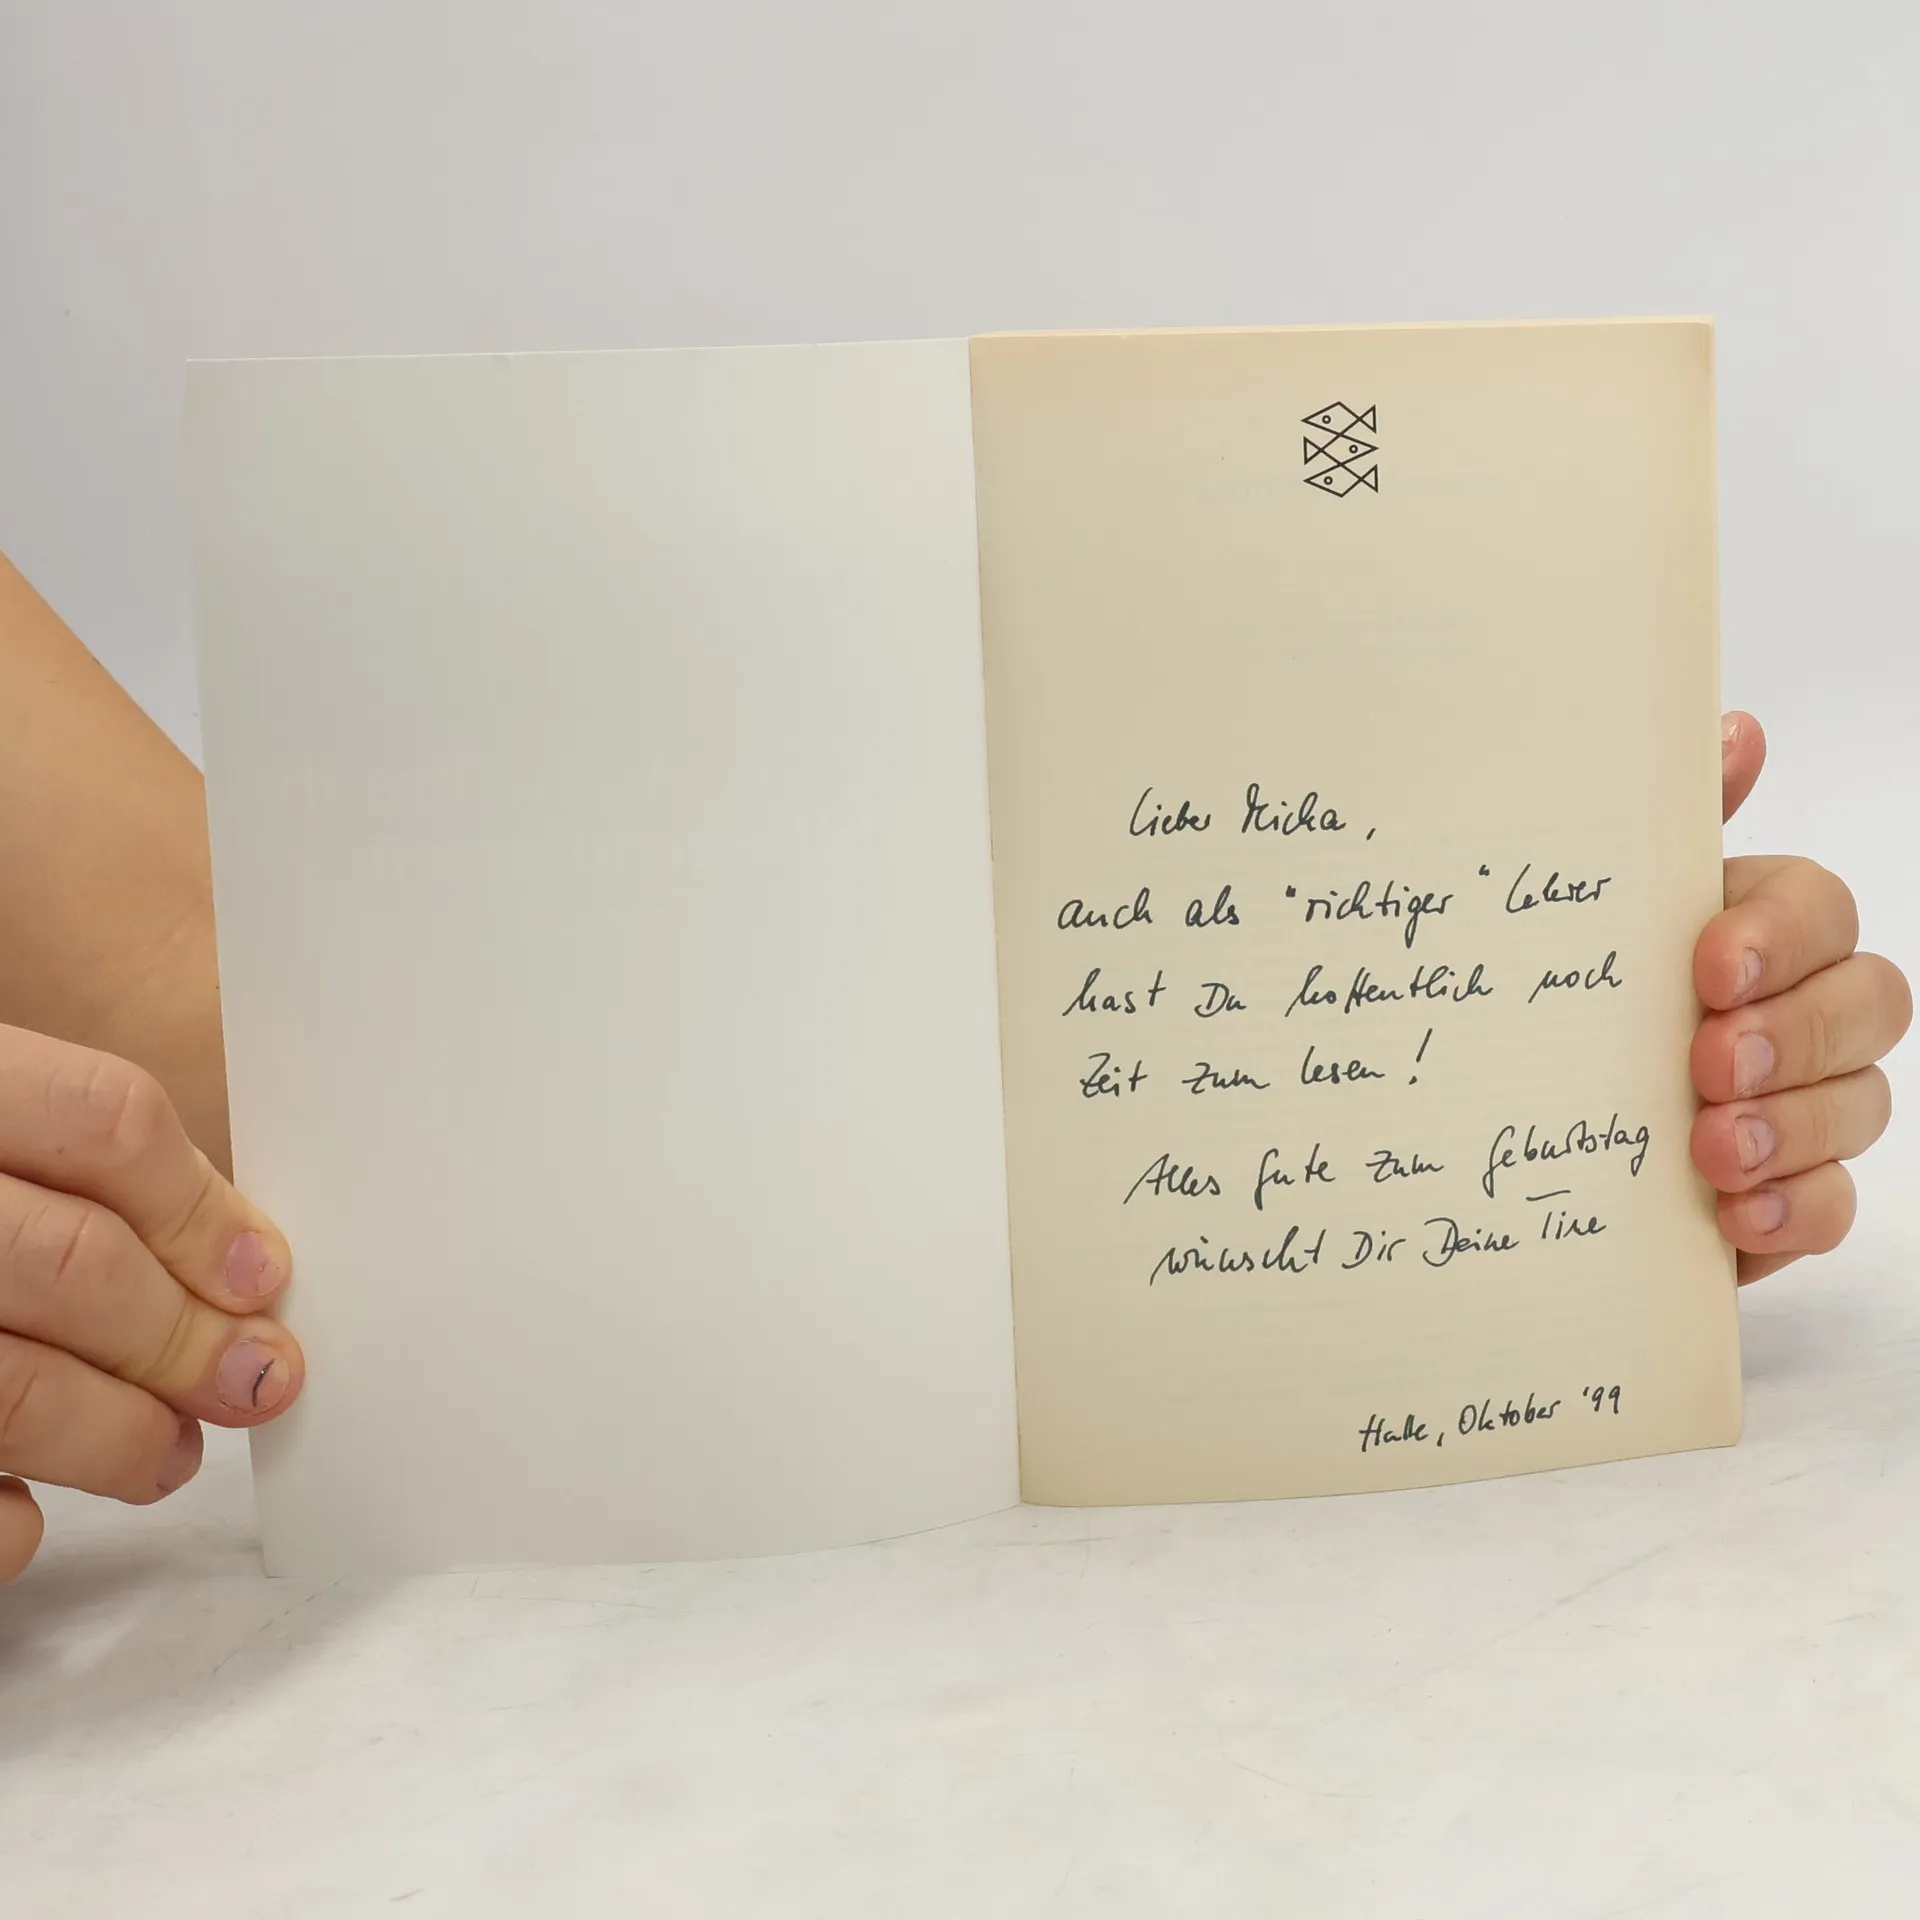 Lieber Micha,
auch als "richtiger" Lehrer
hast Du hoffentlich noch
Zeit zum Lesen!
Alles Gute zum Geburtstag
wünscht Dir Deine Tine
Halle, Oktober '99